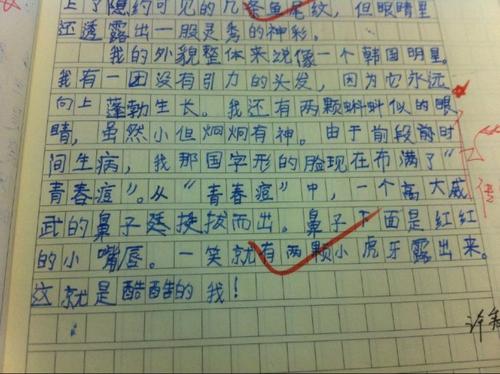 上了隐约可见的几条鱼尾纹，但眼睛里
还透露出一股灵秀的神彩。
我的外貌整体来说像一个韩国明星。
我有一团没有引力的头发，因为它永远
向上蓬勃生长。我还有两颗蝌蚪似的眼
睛，虽然小但炯炯有神。由于前段前时
间生病，我那国字形的脸现在布满了“
青春痘”。从“青春痘”中，一个高大威
武的鼻子廷挺拔而出。鼻子下面是红红
的小嘴唇。一笑就有两颗小虎牙露出来。
这就是酷酷的我！